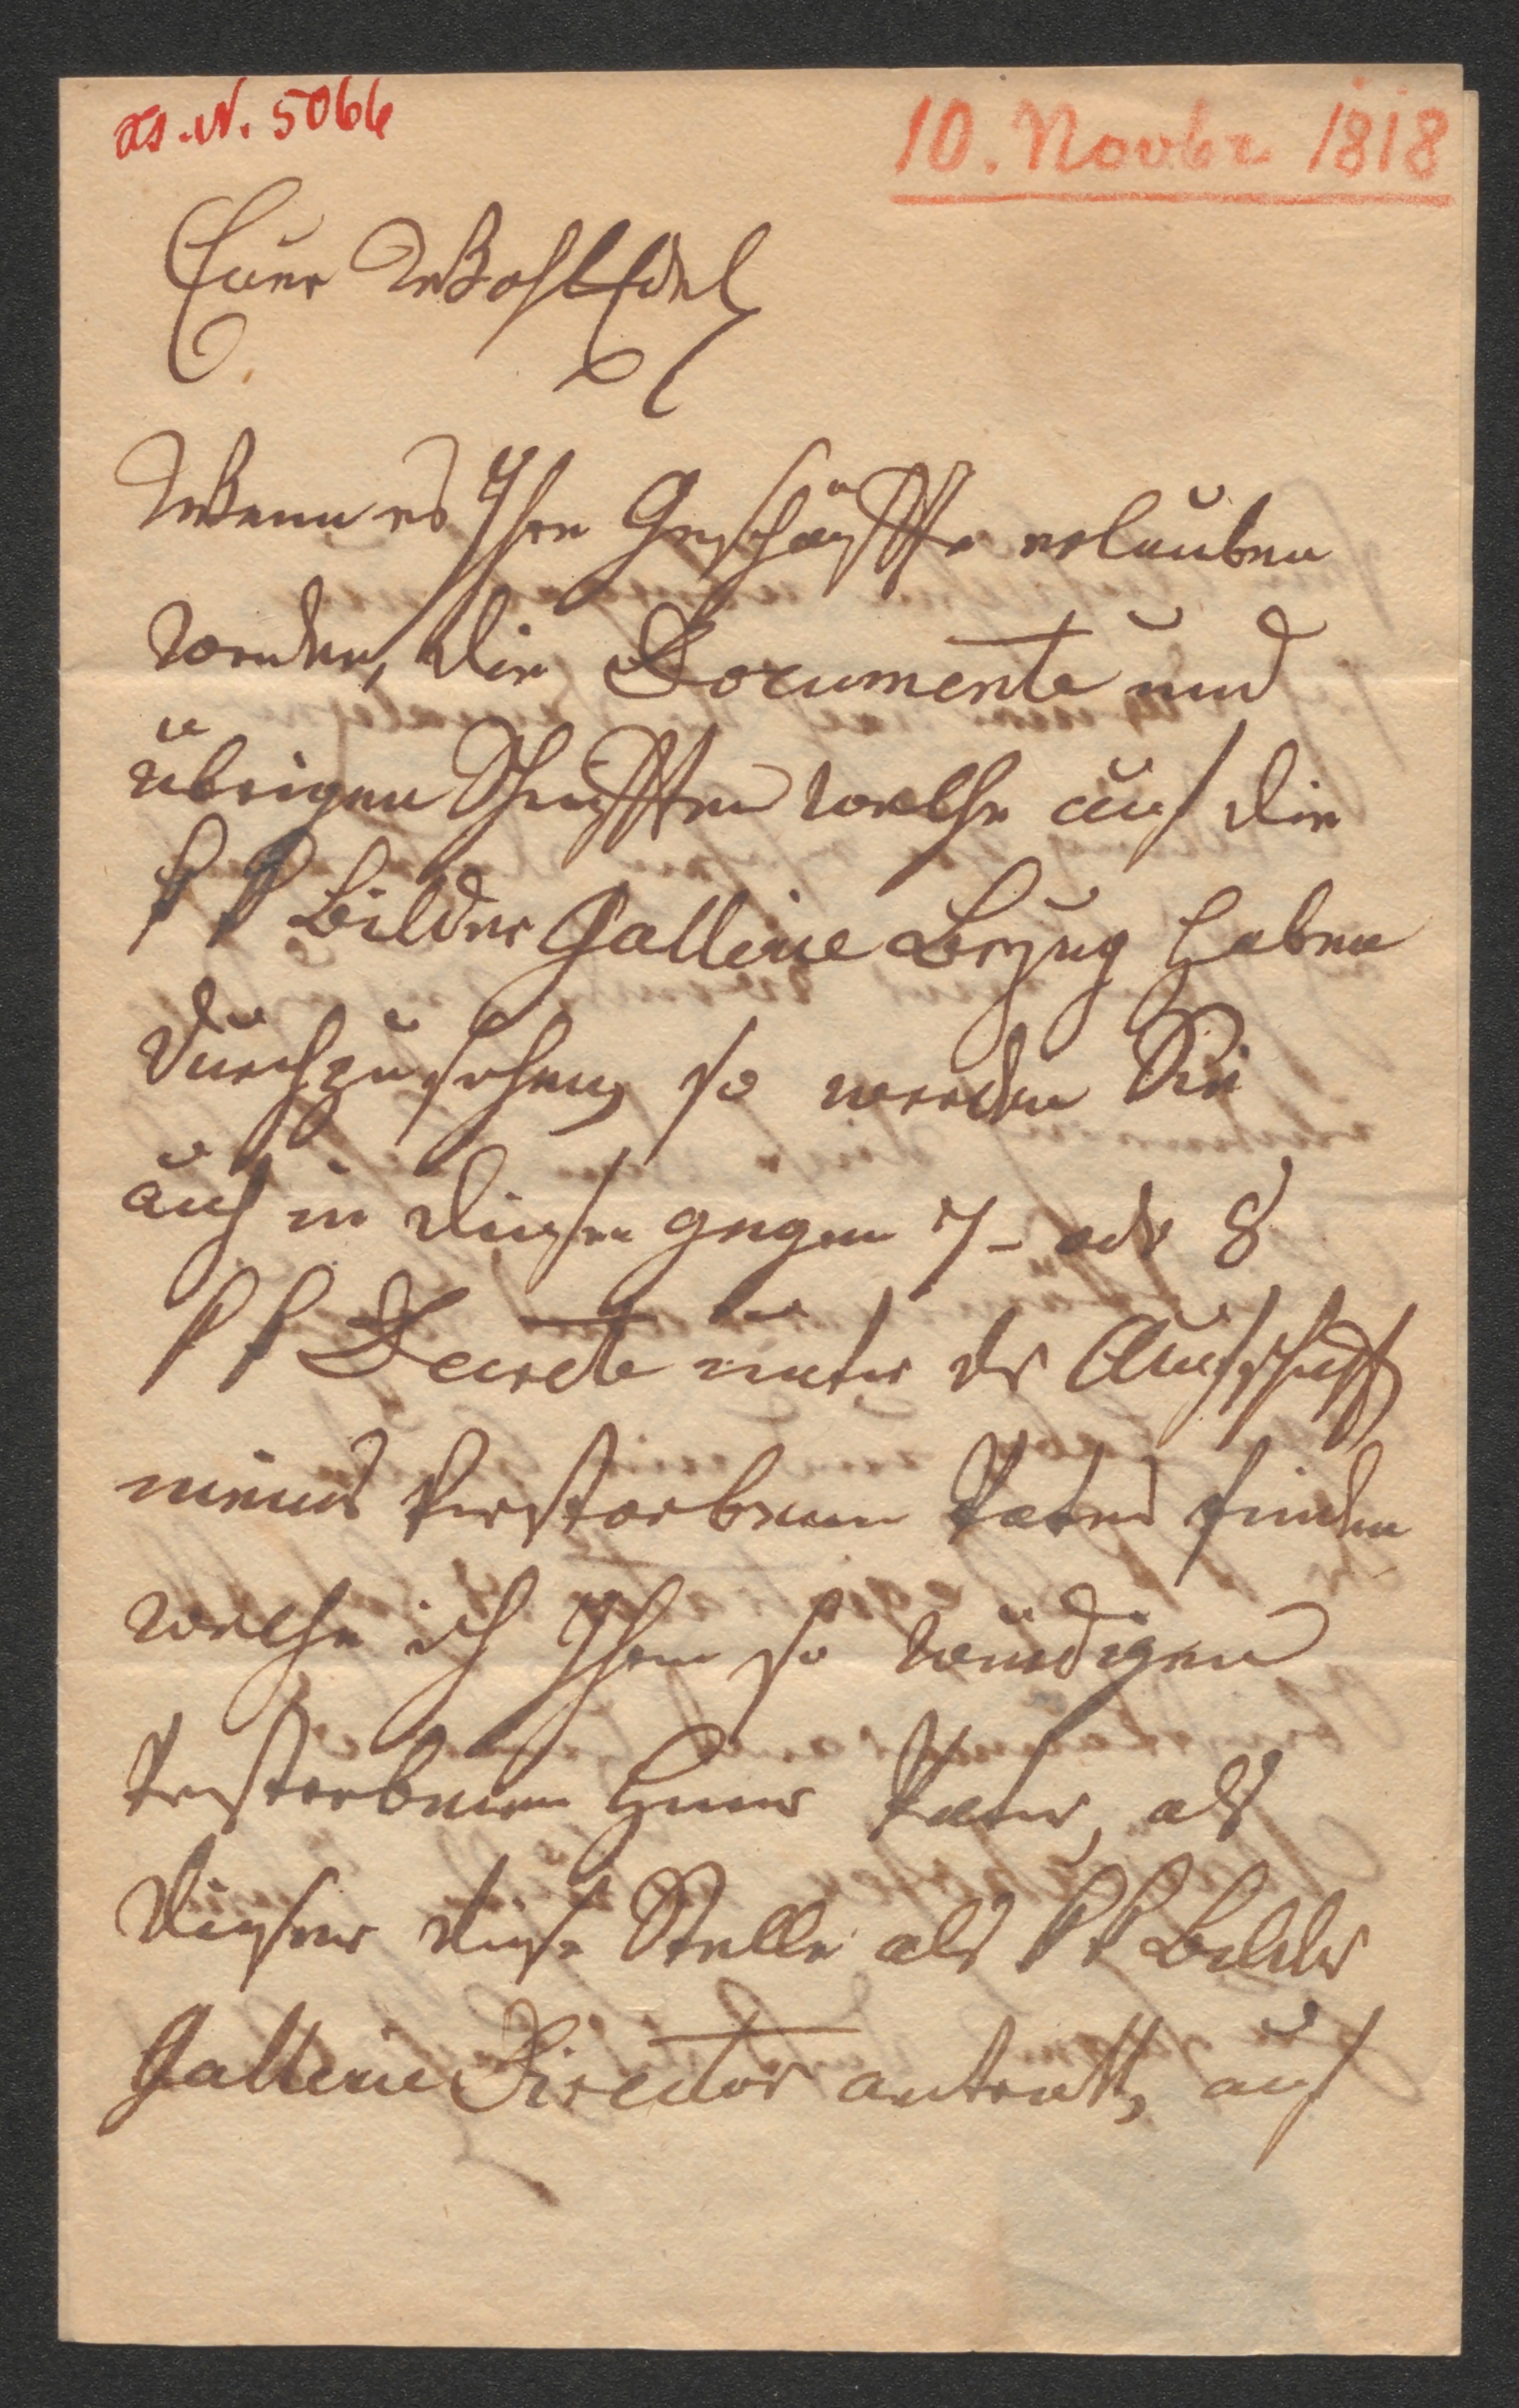 As. N. 5066
10. Novbr 1818
Euer WohlEdel
Wenn es Ihre Geschäffte erlauben
werden, die Documente und
übrigen Schrifften welche auf die
k k Bilder Gallerie Bezug haben
durchzusehen, so werden Sie
auch in diesen gegen 7- oder 8
k k Decrete unter der Aufschrifft
meines verstorbenen Vaters finden
welche ich Ihrem so würdigen
verstorbenen Herrn Vater, als
dieser diese Stelle als k k Bilder
Gallerie Director antratt, auf